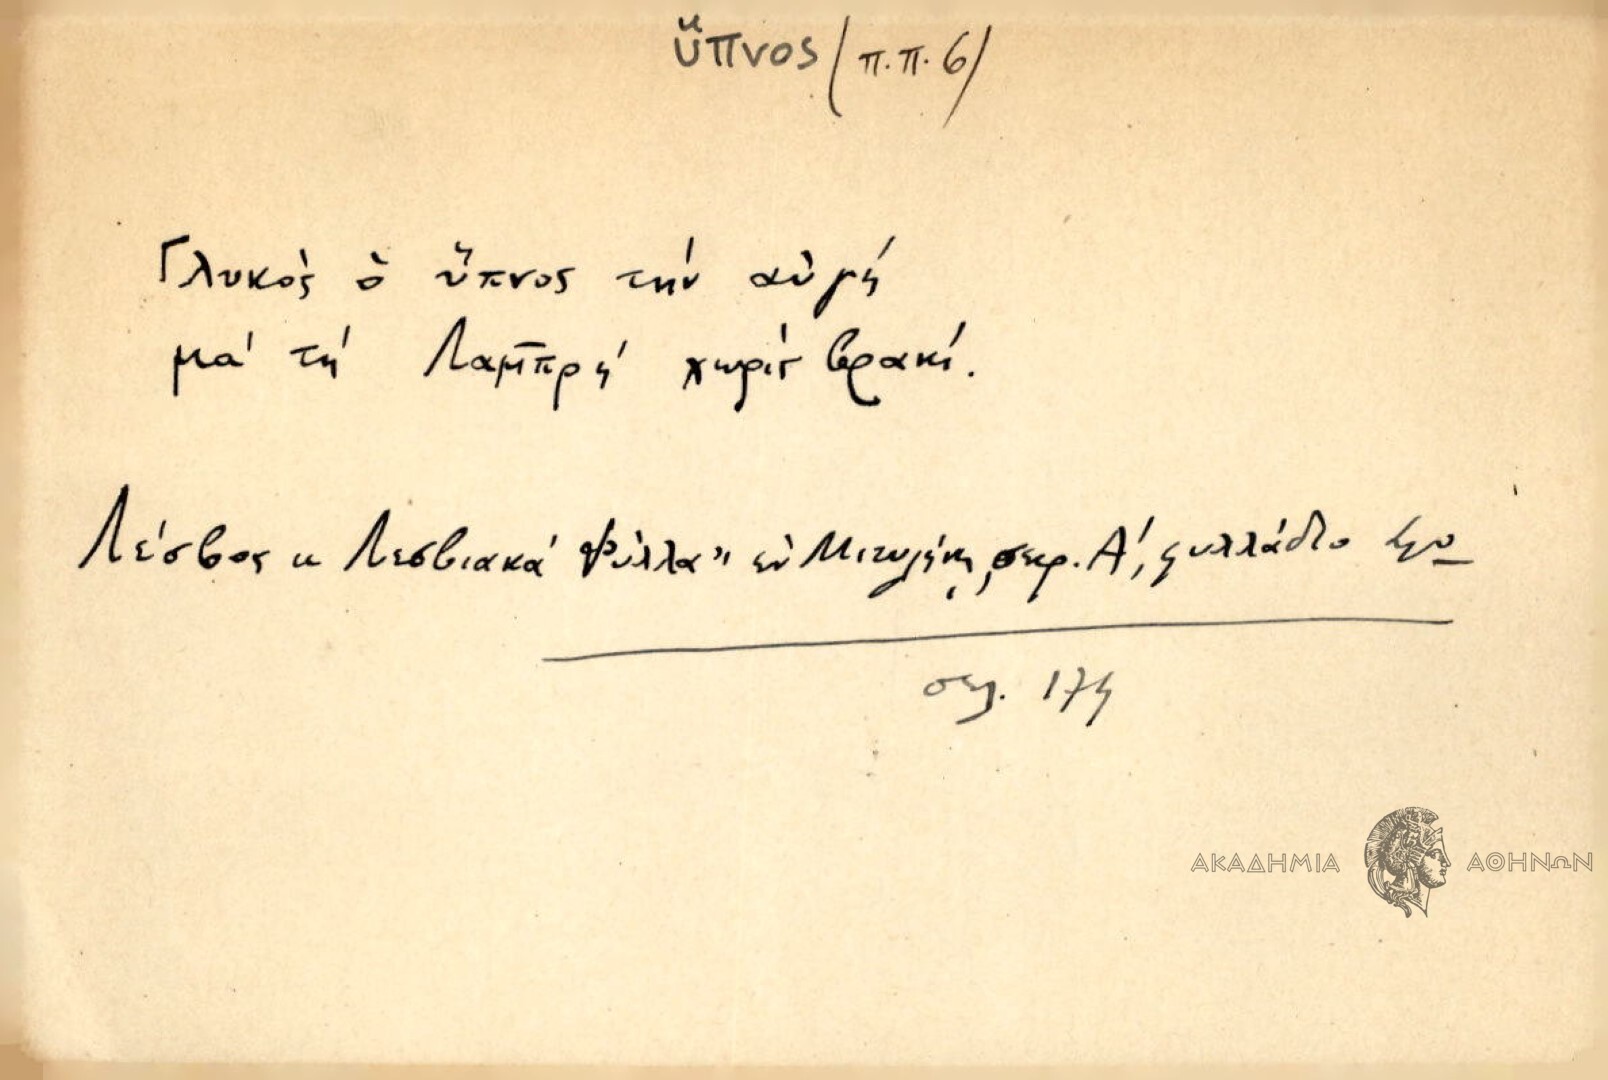 ὕπνος (π.π. 6)
Γλυκὸς ὁ ὕπνος τὴν αὐγή
μά τή Λαμπρή χωρίς βρακί.
Λέσβος « Λεσβιακά Φύλλα" ἐν Μιτυλήνῃ, σειρ. Α', φυλλάδιο
σελ. 174
ΑΚΑΔΗΜΙΑ ΑΘΗΝΩΝ